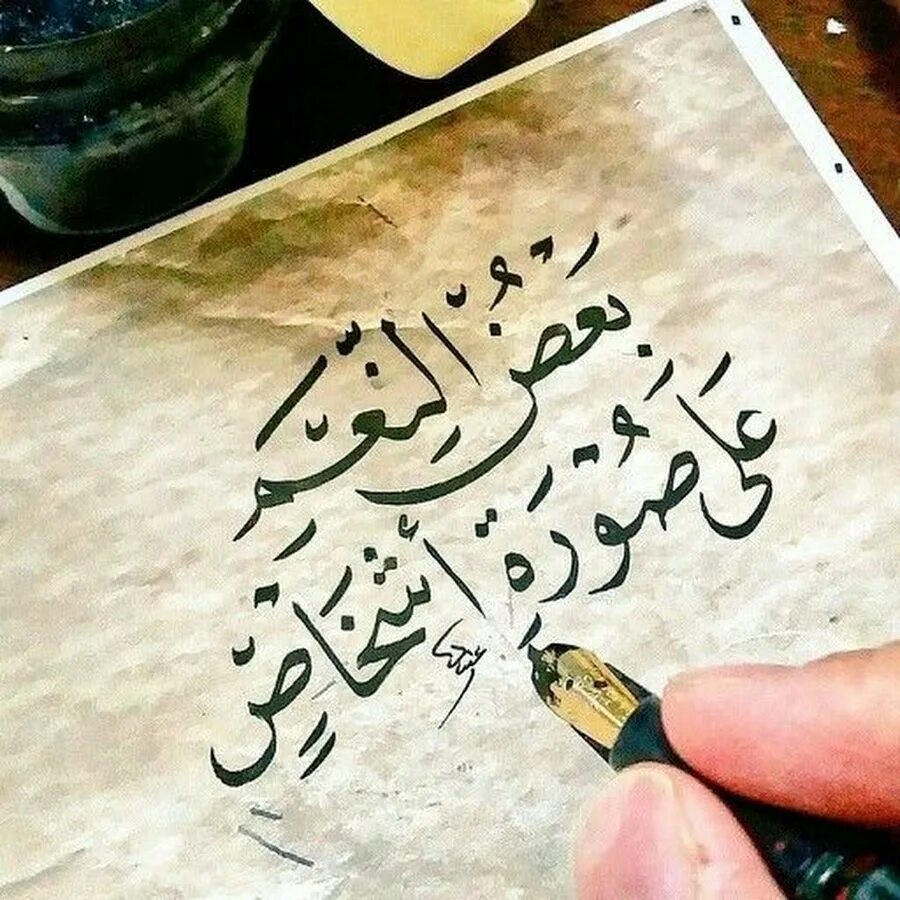 بَعْضُ النِّعَم
عَلَى صُورَةِ أشْخَاصٍ